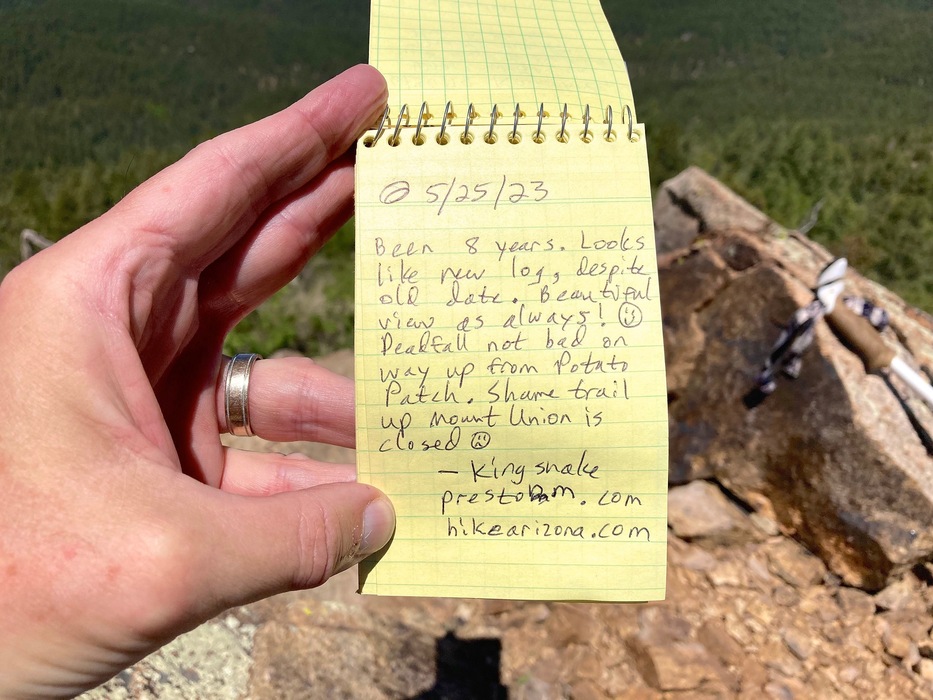 5/25/23
Been 8 years. Looks
like new log, despite
old date. Beautiful
view as always! ☺
Deadfall not bad on
way up from Potato
Patch. Shame trail
up Mount Union is
closed ☹
— Kingsnake
prestobam.com
hikearizona.com